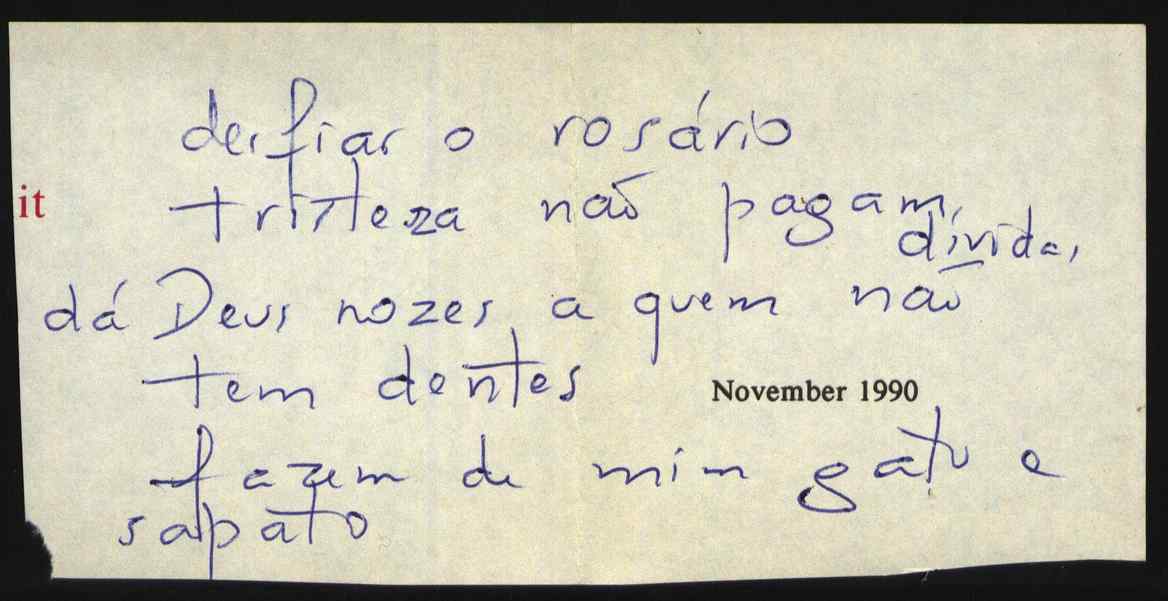 desfiar o rosário
it
tristeza não pagam
dívidas
dá Deus nozes a quem não
tem dentes
November 1990
fazem de mim gato e
sapato